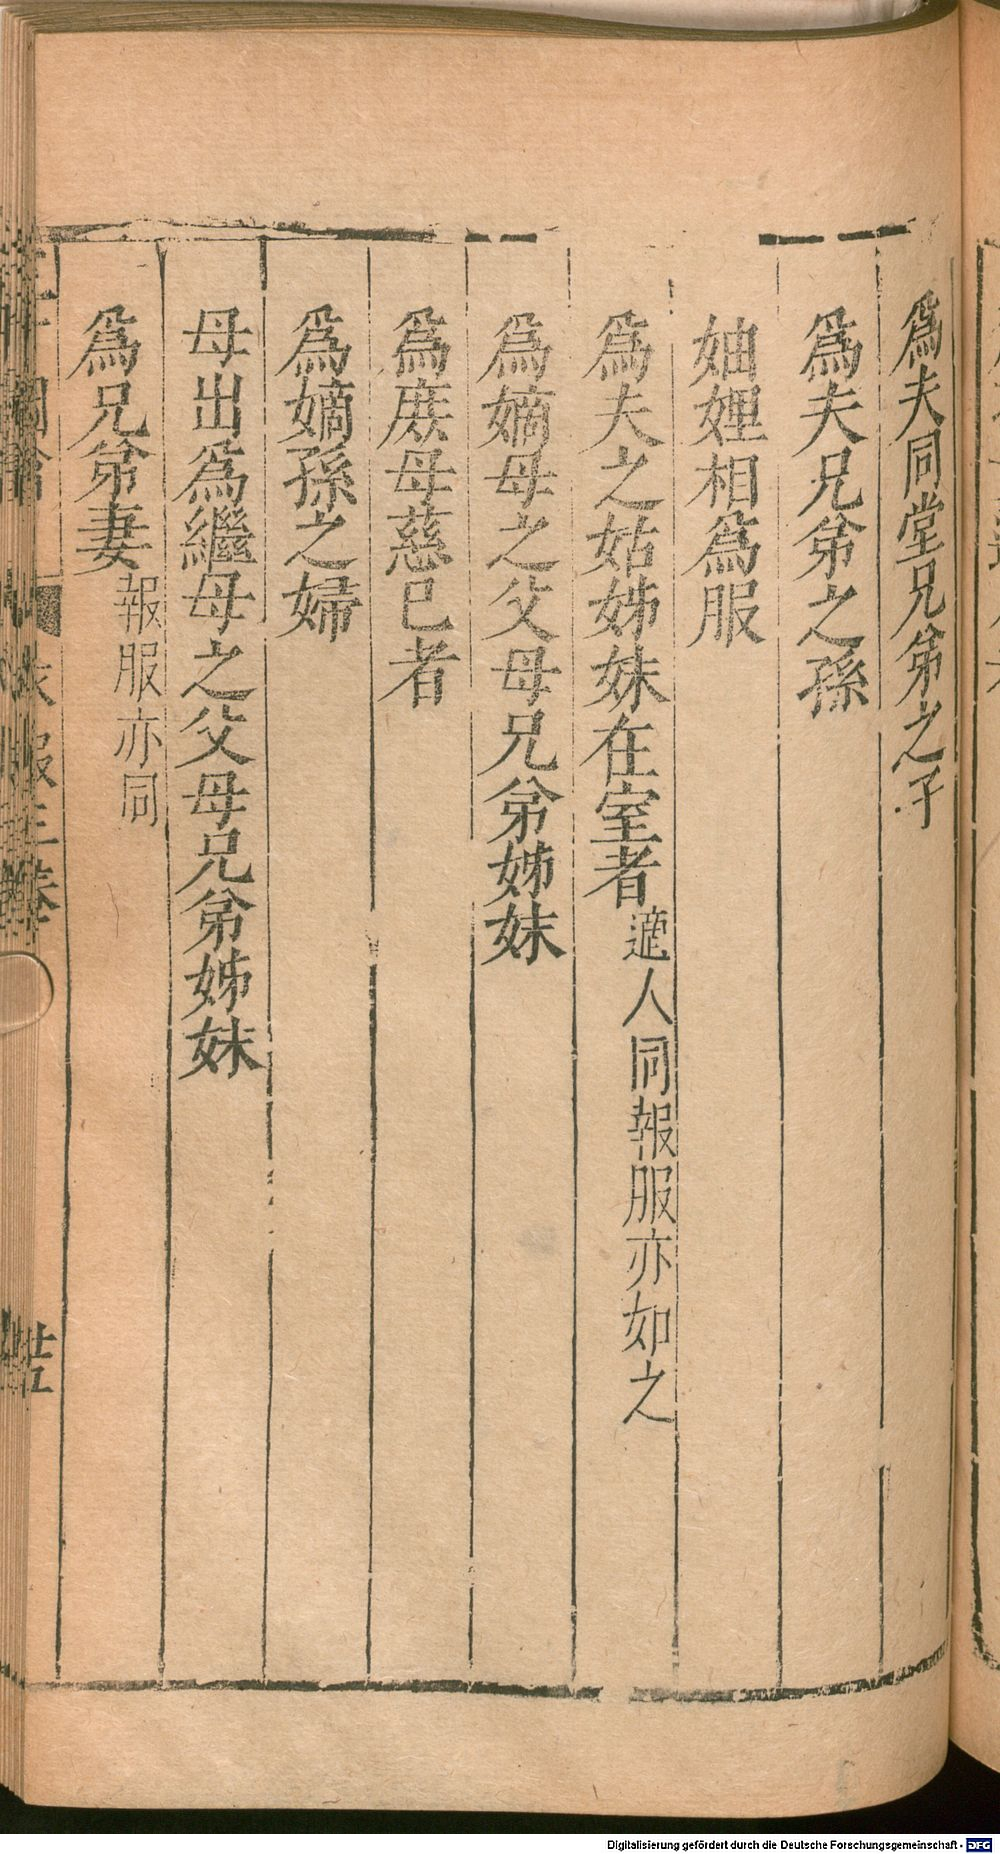 為夫同堂兄弟之子
為夫兄弟之孫
妯娌相為服
為夫之姑姊妹在室者適人同報服亦如之
為嫡母之父母兄弟姊妹
為庶母慈已者
為嫡孫之婦
母出為繼母之父母兄弟姊妹
為兄弟妻報服亦同
Digitalisierung gefördert durch die Deutsche Forschungsgemeinschaft - DFG